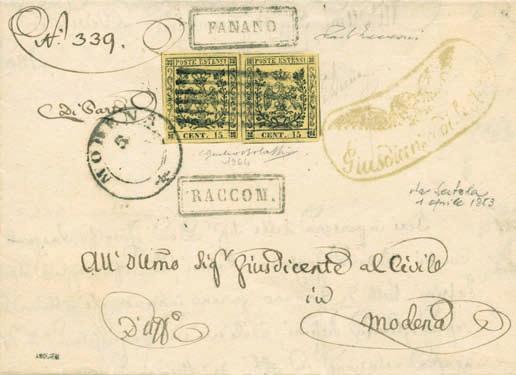 FANANO
Nº 339.
POSTE ESTENSI POSTE ESTENSI
CENT. 15 CENT. 15
Di Parte
MODENA
5
1964
RACCOM.
Giusdicenza di Sestola
da Sestola
1 aprile 1853
All' Illmo Sigr Giusdicente al Civile
in
D'uffº Modena